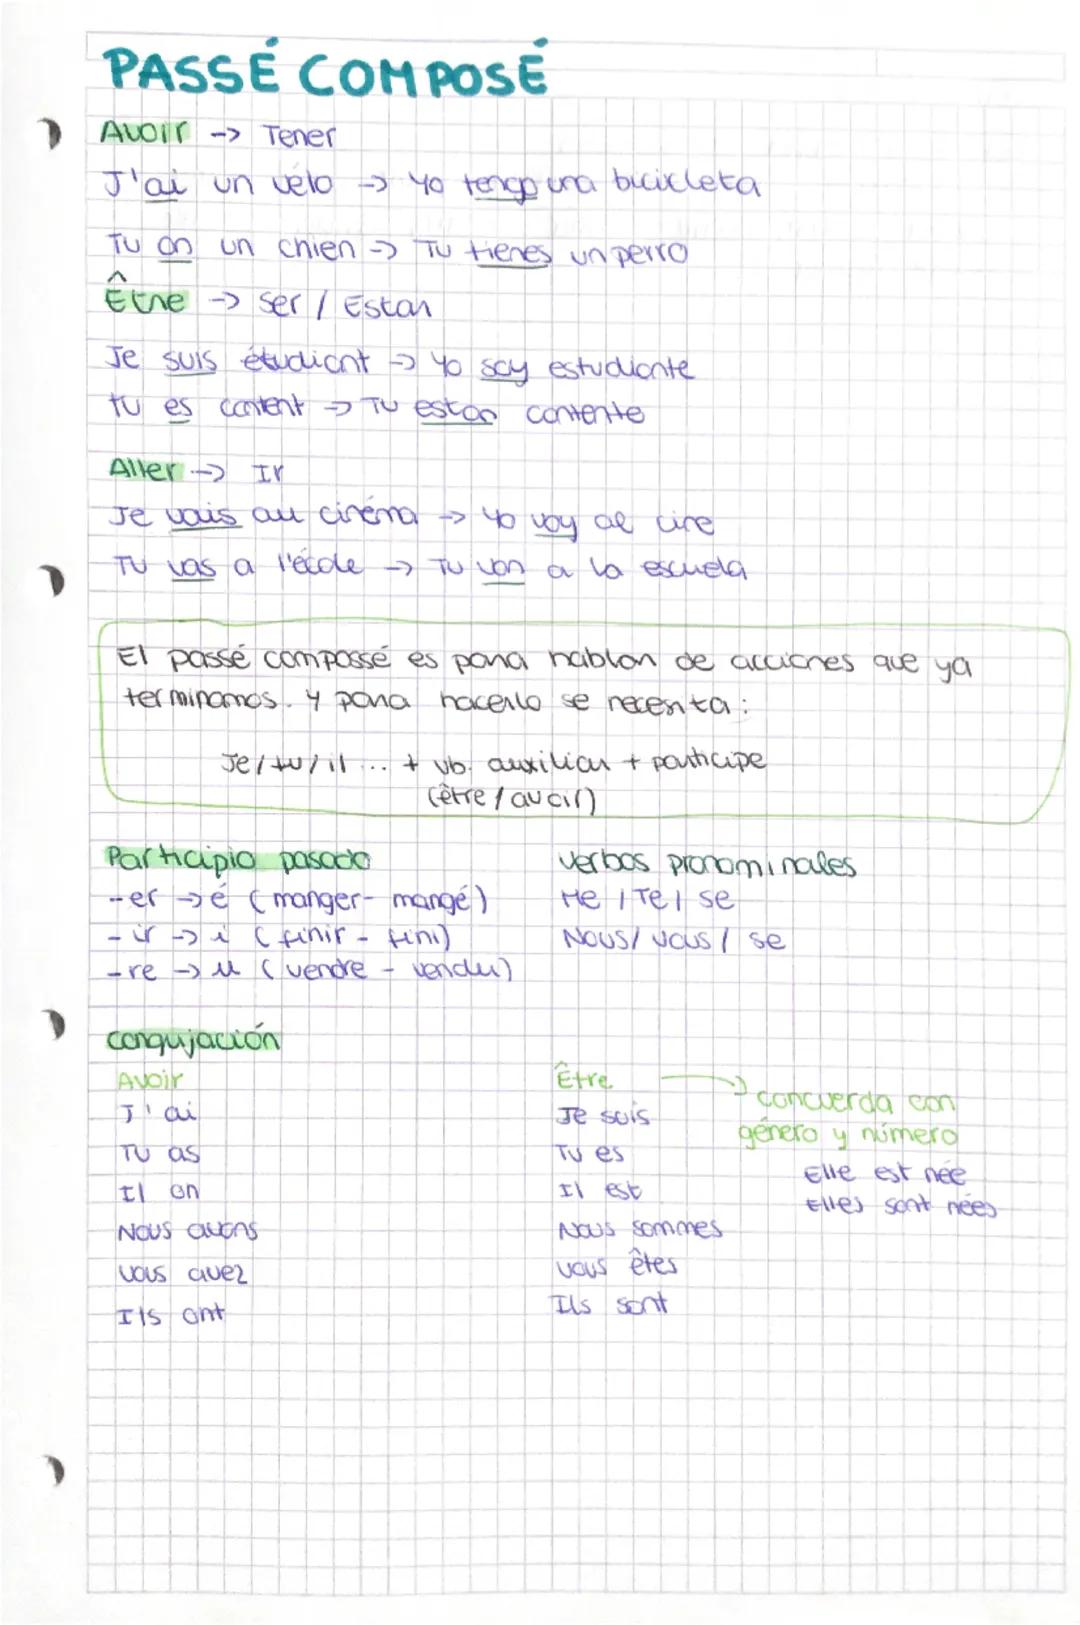 PASSÉ COMPOSÉ
Avoir -> Tener
J'ai un vélo -> Yo tengo una bicicleta
Tu on un chien -> Tu tienes un perro
Être -> Ser / Estar
Je suis étudiant -> Yo soy estudiante
Tu es content -> Tu estas contente
Aller -> Ir
Je vais au cinéma -> Yo voy al cine
Tu vas a l'école -> Tu van a la escuela
El passé compossé es para hablar de acciones que ya
terminamos. Y para hacerlo se necesita:
Je/tu/il ... + vb. auxiliar + participe
(être / avoir)
Participio pasado
-er -> é (manger - mangé)
-ir -> i (finir - fini)
-re -> u (vendre - vendu)
verbos pronominales
Me / Te / se
Nous / Vous / se
congujación
Avoir
J'ai
Tu as
Il on
Nous avons
Vous avez
Ils ont
Être -> concuerda con
género y número
Je suis
Tu es
Il est
Nous sommes
Vous êtes
Ils sont
Elle est née
Elles sont nées